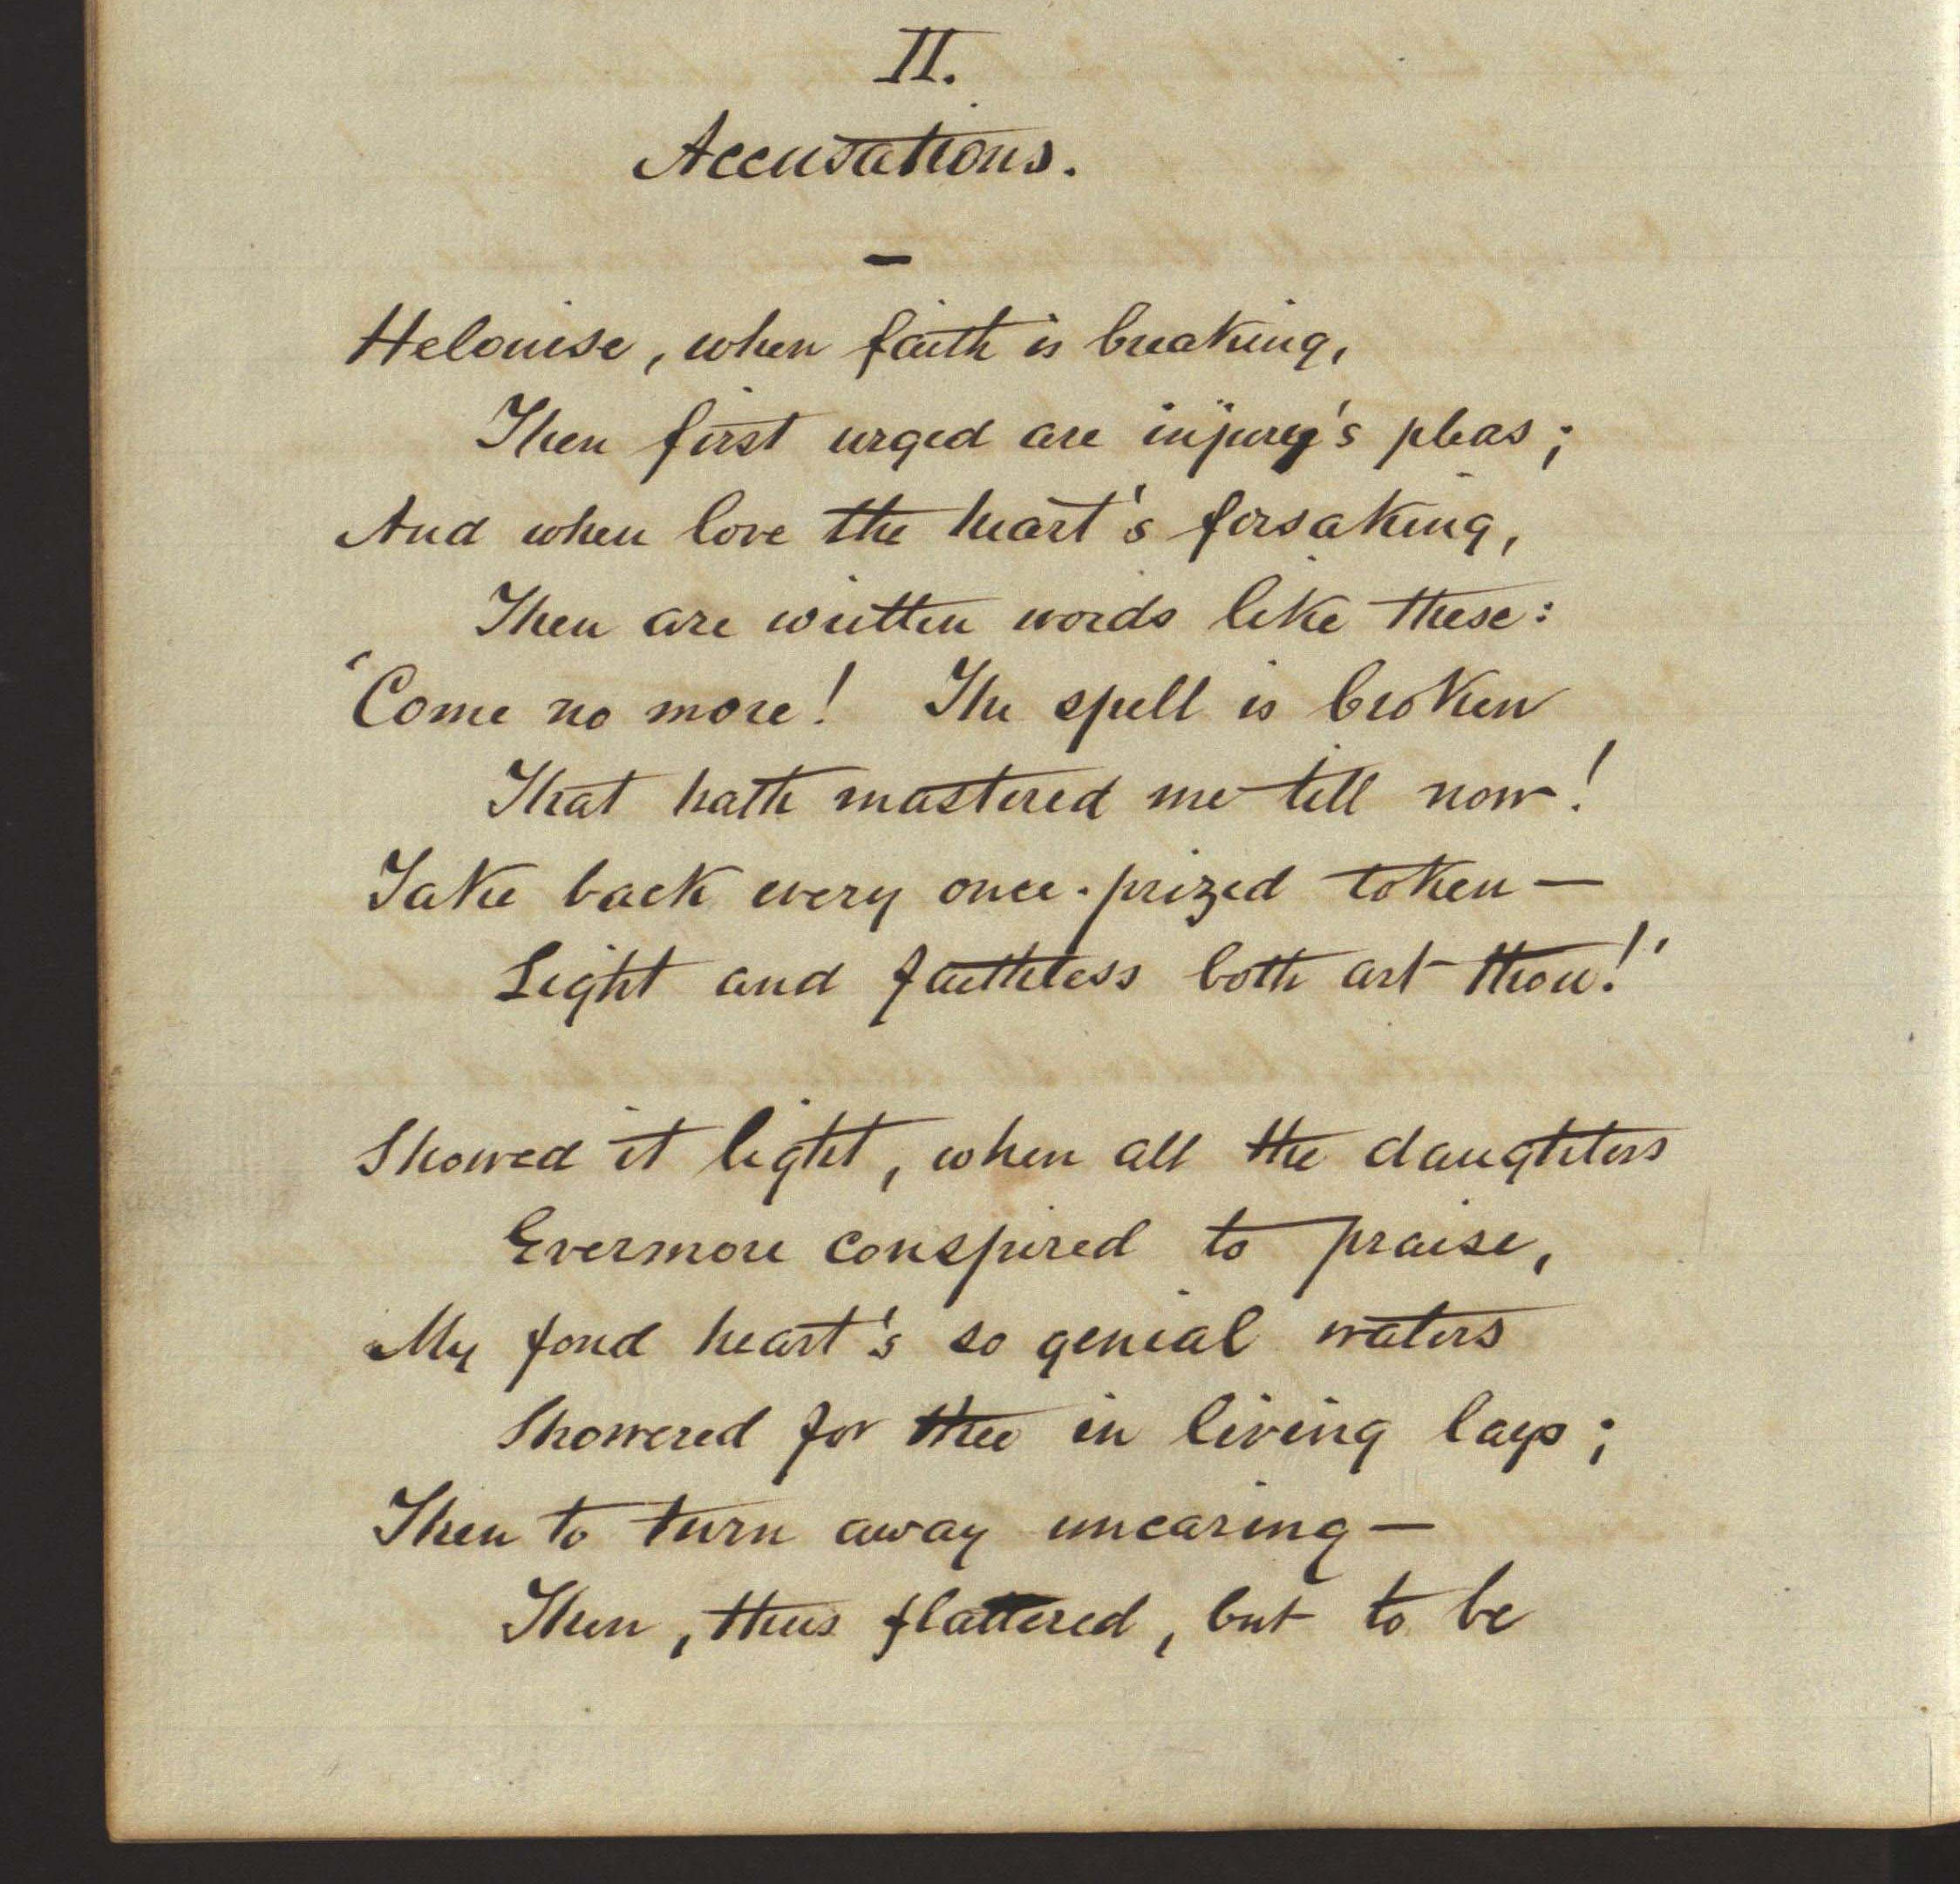 II.
Accusations.
–
Helouise, when faith is breaking,
Then first urged are injury's pleas;
And when love the heart's forsaking,
Then are written words like these:
"Come no more! The spell is broken
That hath mastered me till now!
Take back every once-prized token —
Light and faithless both art thou!"
Showed it light, when all the daughters
Evermore conspired to praise,
My fond heart's so genial waters
Showered for thee in living lays;
Then to turn away uncaring —
Then, thus flattered, but to be